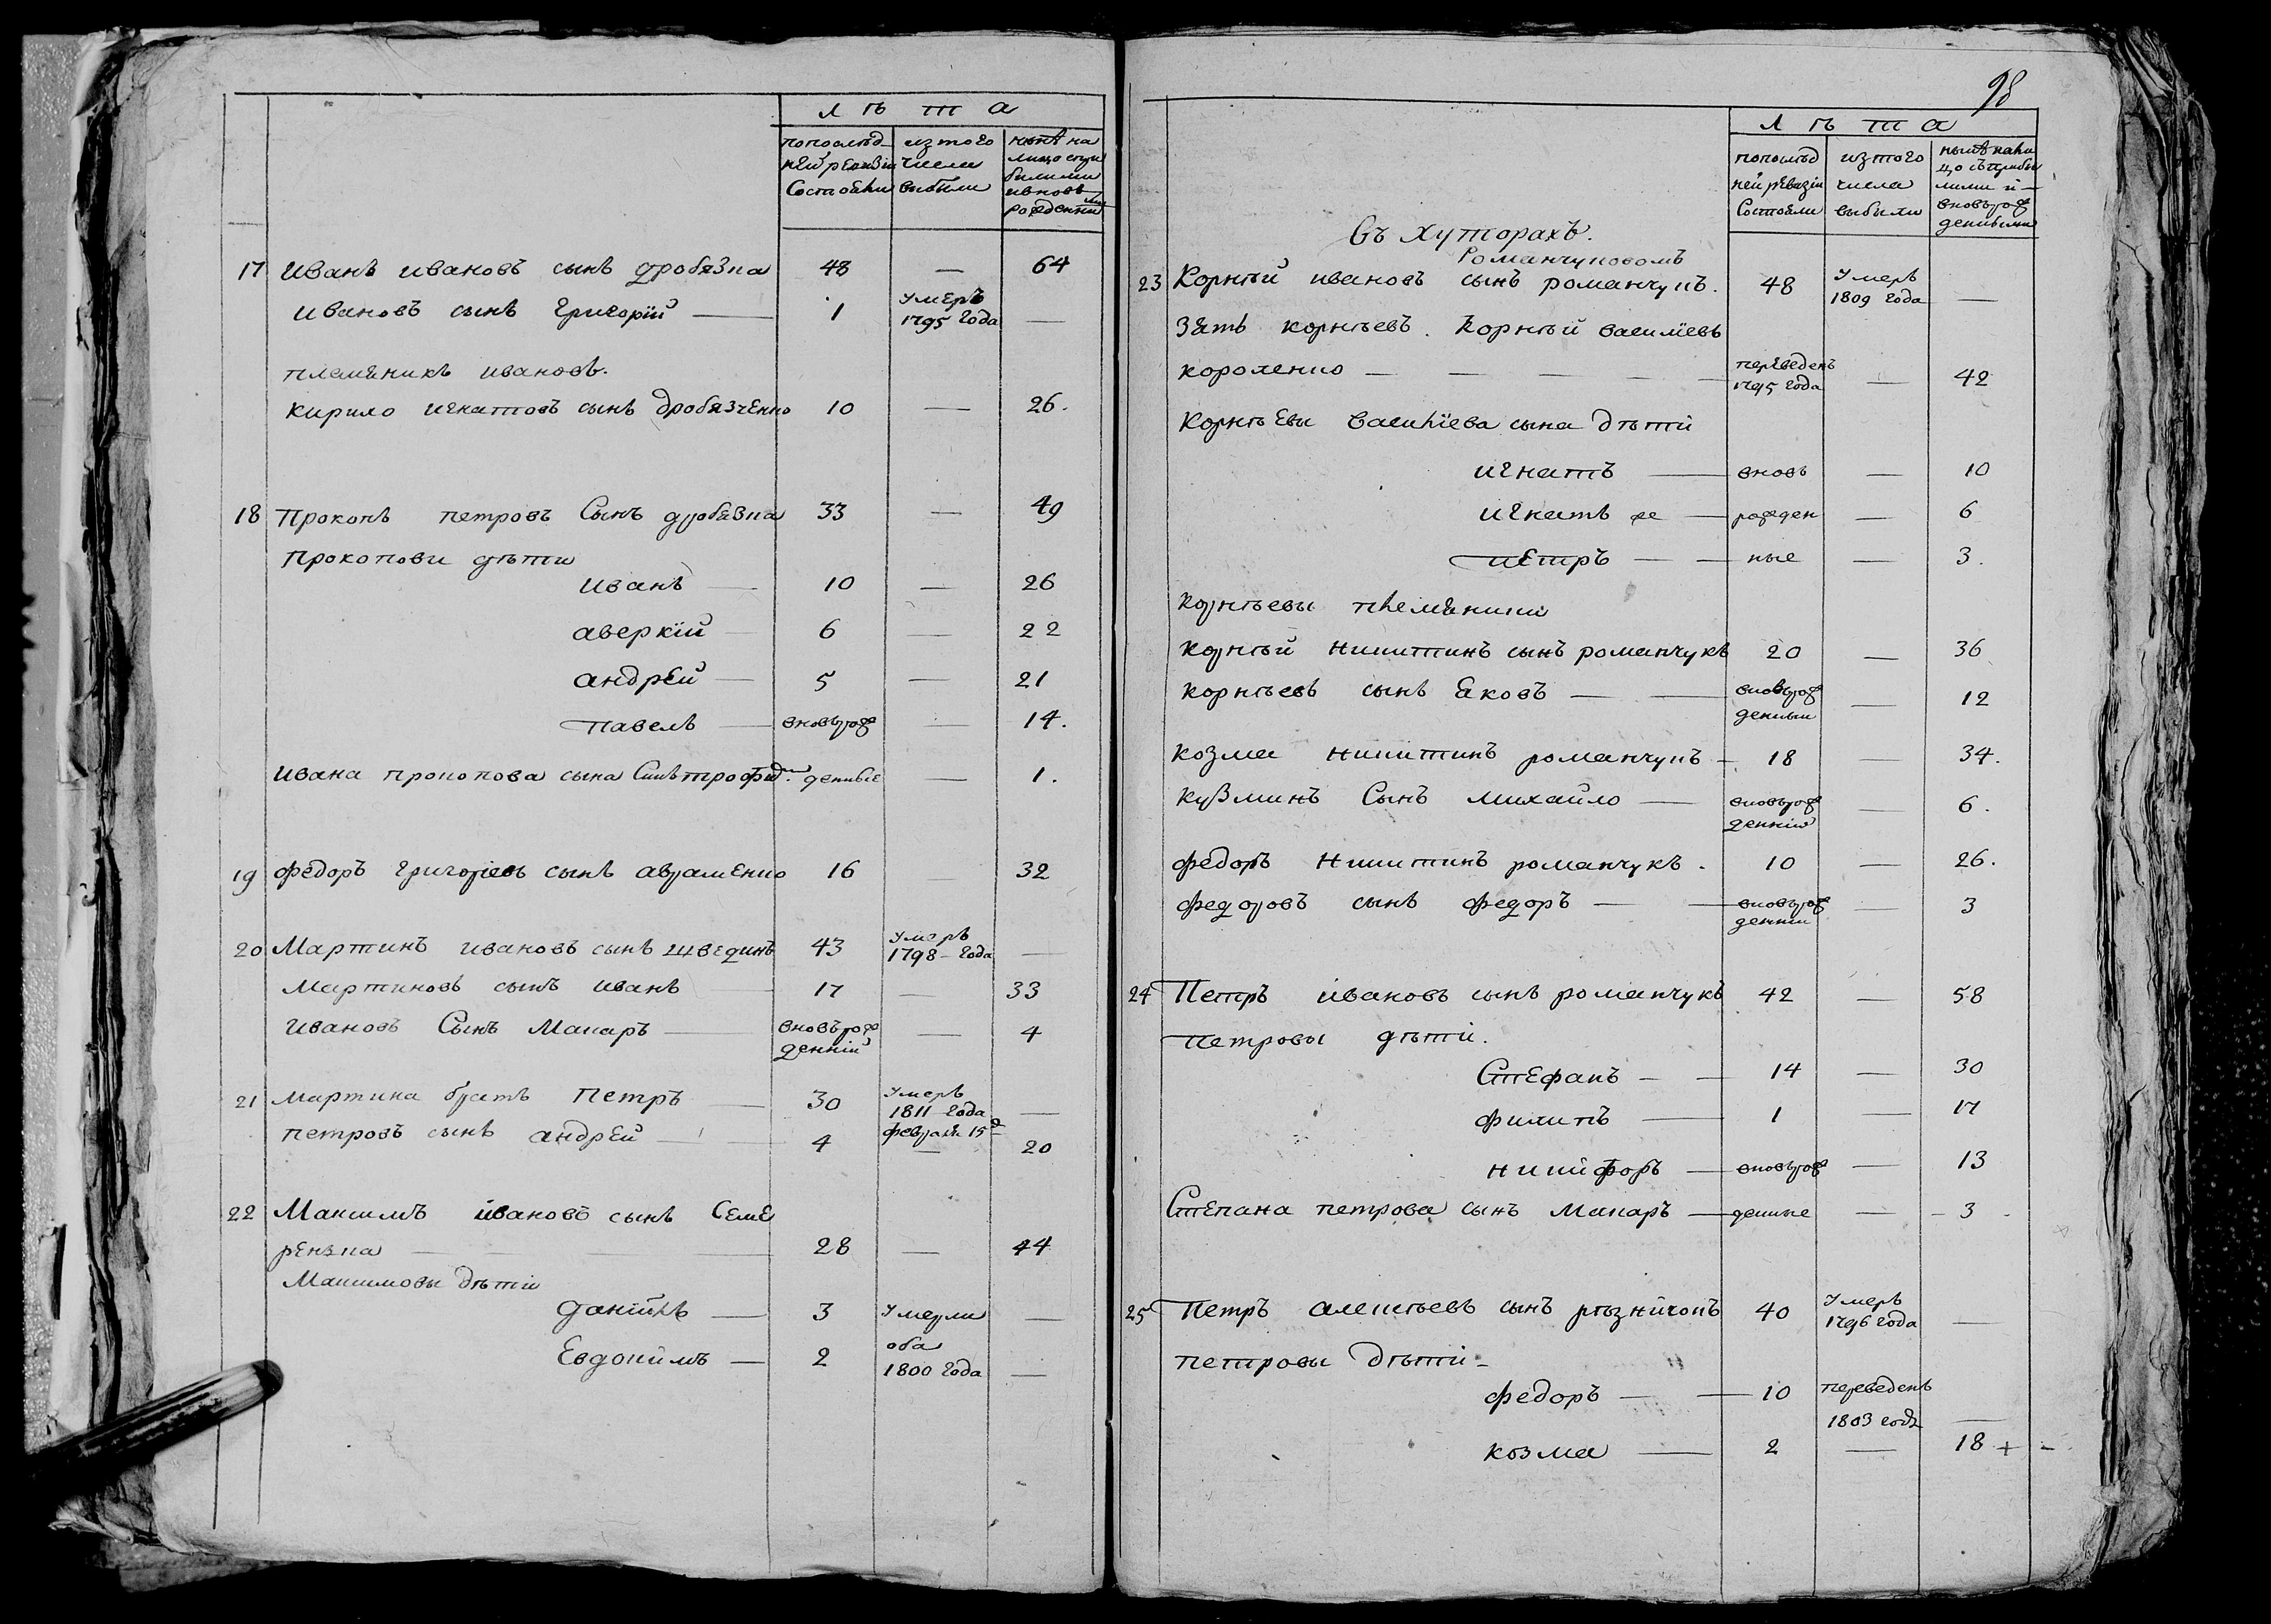 лѣта
попослѣд- ней ревизіи Состояли
изтого числа выбыли
нынѣ на лицо спри былими ивновь рожденни ми
17 Иванъ ивановъ сынъ дробязка 48 — 64
ивановъ сынъ григорій — 1 умеръ 1795 года —
племяникъ ивановъ.
кирило игнатовъ сынъ дробязченко 10 — 26.
18 Прокопъ петровъ Сынъ дробязка 33 — 49
Прокопови дѣти
иванъ — 10 — 26
аверкій — 6 — 22
андрей — 5 — 21
павелъ — вновьрож — 14.
ивана прокопова сына Синъ трофи. денные — 1.
19 федоръ григоріевъ сынъ авраменко 16 — 32
20 Мартинъ ивановъ сынъ швединъ 43 умеръ 1798 - года —
Мартиновъ сынъ иванъ — 17 — 33
ивановъ Сынъ Макаръ — вновьрож денній — 4
21 мартина братъ Петръ — 30 умеръ 1811 года февраля 15 —
петровъ сынъ андрей — 4 — 20
22 Максимъ ивановъ сынъ Семе
рензка — 28 — 44
Максимовы дѣти
данійлъ — 3 умерли —
Евдокимъ — 2 оба 1800 года —
98
лѣта
попослѣд ней ревизіи Состояли
изтого числа выбыли
нынѣ нали цо съприбы лими и — вновьрож денными
Въ Хуторахъ.
Романчуковомъ
23 Корнѣй ивановъ сынъ романчукъ. 48 умеръ 1809 года —
Зять корнѣевъ. Корнѣй василіевъ
короленко — — — — — переведенъ 1795 года — 42
Корнѣевы василіева сына дѣти
игнатъ — вновь — 10
игнатъ же — рожден — 6
петръ — — ные — 3.
корнѣевы племяники
корнѣй никитинъ сынъ романчукъ 20 — 36
корнѣевъ сынъ яковъ — — вновьрож денный — 12
козма никитинъ романчукъ — 18 — 34.
кузминъ Сынъ михайло — вновьрож денній — 6.
федоръ никитинъ романчукъ. 10 — 26.
федоровъ сынъ федоръ — — вновьрож денни — 3
24 Петръ ивановъ сынъ романчукъ 42 — 58
петровы дѣти.
Стефанъ — — 14 — 30
филипъ — 1 — 17
никифоръ — вновьрож — 13
Степана петрова сынъ макаръ — денные — - 3 -
25 Петръ алексѣевъ сынъ рѣзничокъ 40 умеръ 1796 года —
петровы дѣти -
федоръ — — 10 переведенъ 1803 года —
козма — 2 — 18 + -